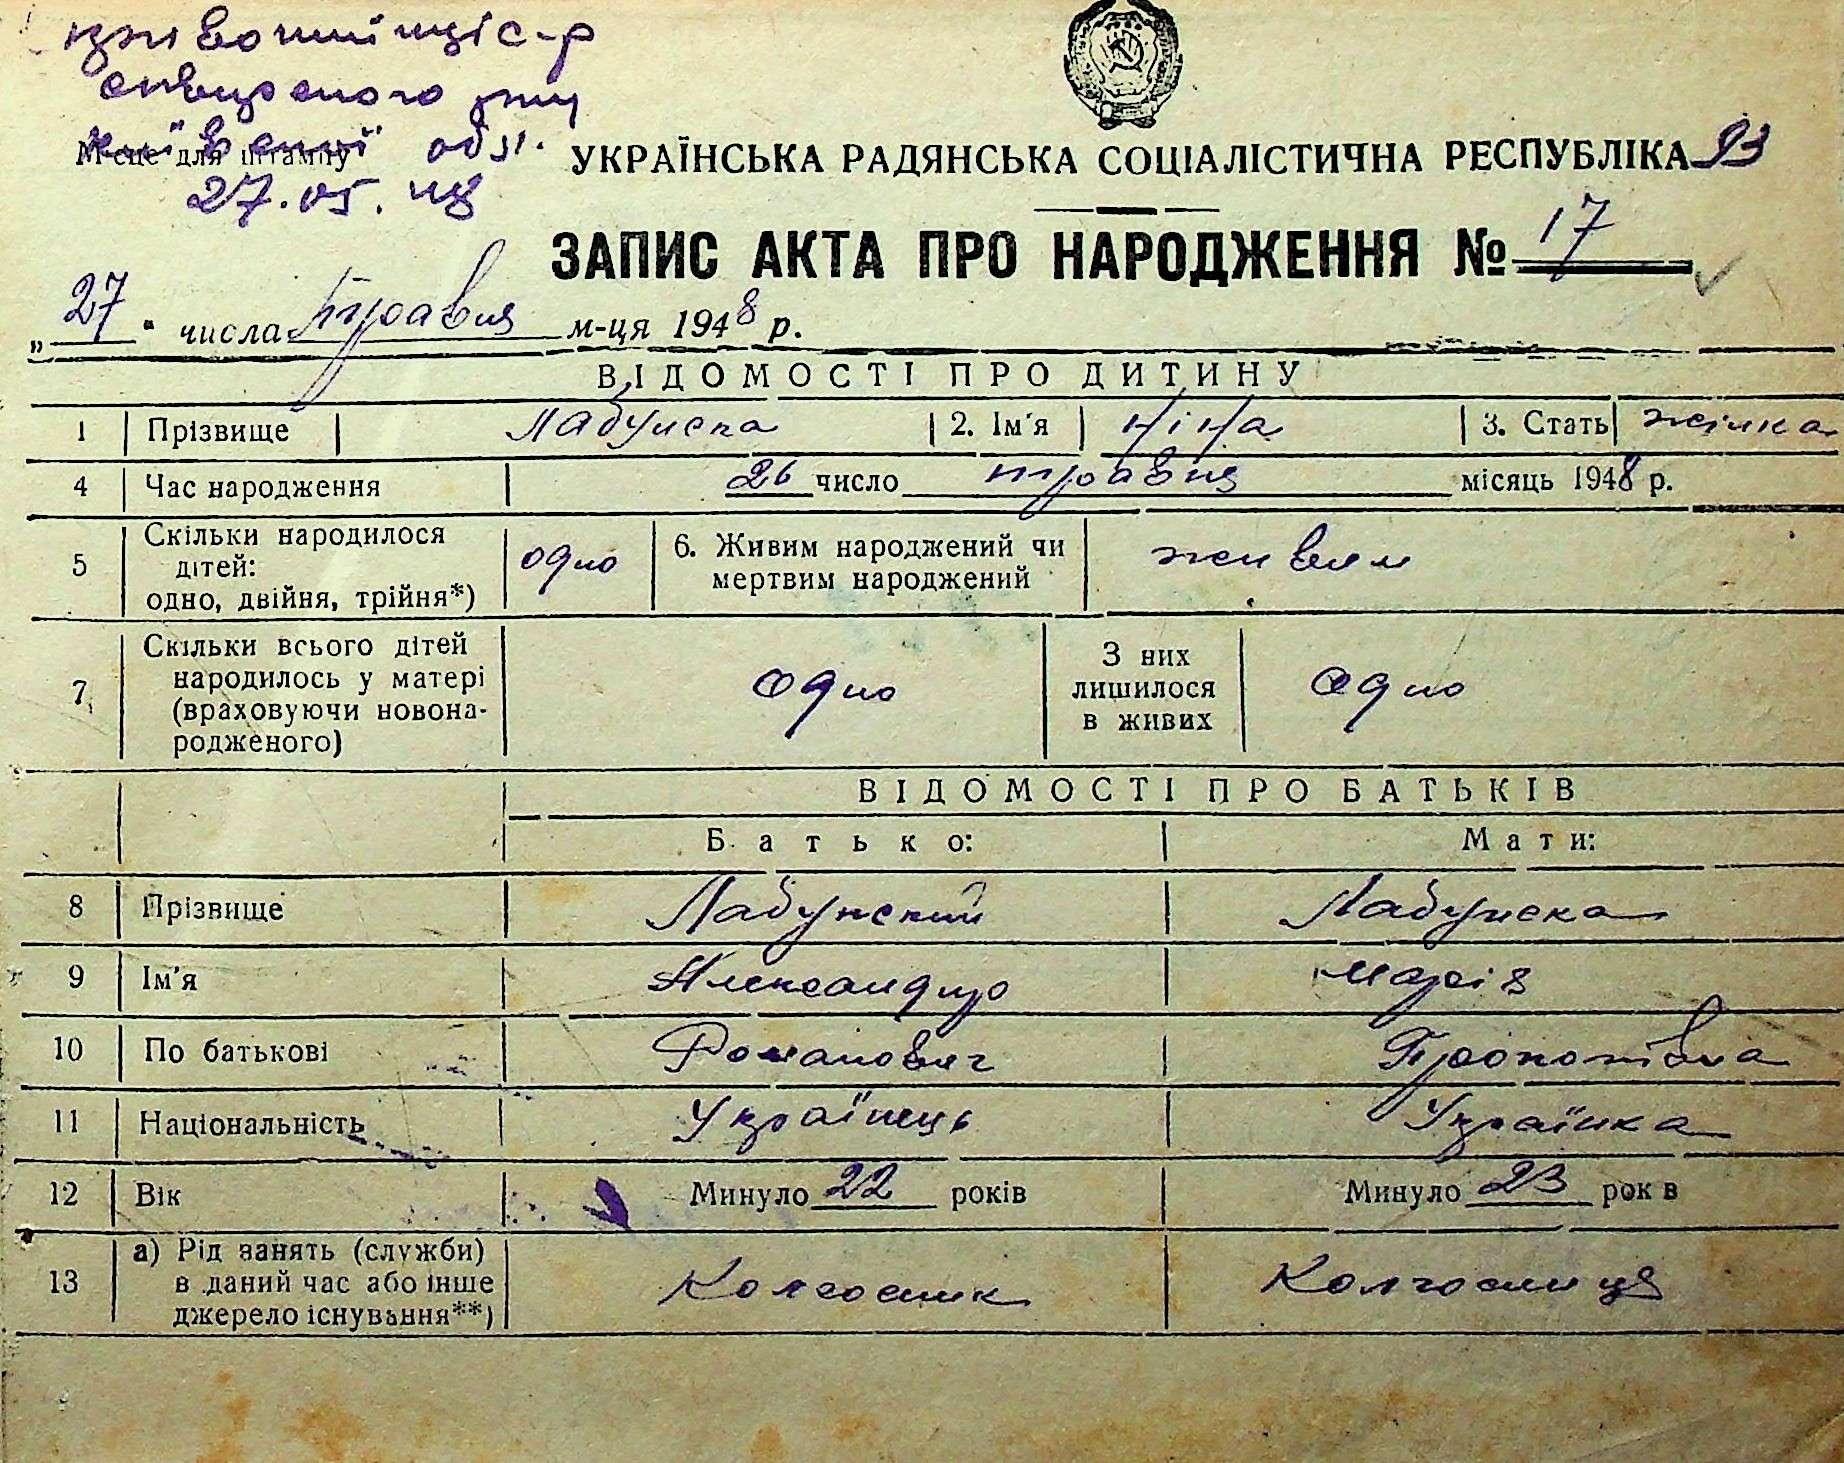 обл.
Місце для штампу
27.05.48
УКРАЇНСЬКА РАДЯНСЬКА СОЦІАЛІСТИЧНА РЕСПУБЛІКА 93
ЗАПИС АКТА ПРО НАРОДЖЕННЯ № 17
„27“ числа травня м-ця 1948 р.
ВІДОМОСТІ ПРО ДИТИНУ
1 Прізвище Лабунска 2. Ім'я Ніна 3. Стать жінка
4 Час народження 26 число травня місяць 1948 р.
5 Скільки народилося дітей: одно, двійня, трійня*) одно 6. Живим народжений чи мертвим народжений живим
7 Скільки всього дітей народилось у матері (враховуючи новонародженого) одно З них лишилося в живих одно
ВІДОМОСТІ ПРО БАТЬКІВ
Батько: Мати:
8 Прізвище Лабунский Лабунска
9 Ім'я Александр Марія
10 По батькові Романович Прокопівна
11 Національність Українець Українка
12 Вік Минуло 22 років Минуло 23 років
13 а) Рід занять (служби) в даний час або інше джерело існування**) Колгоспник Колгоспниця